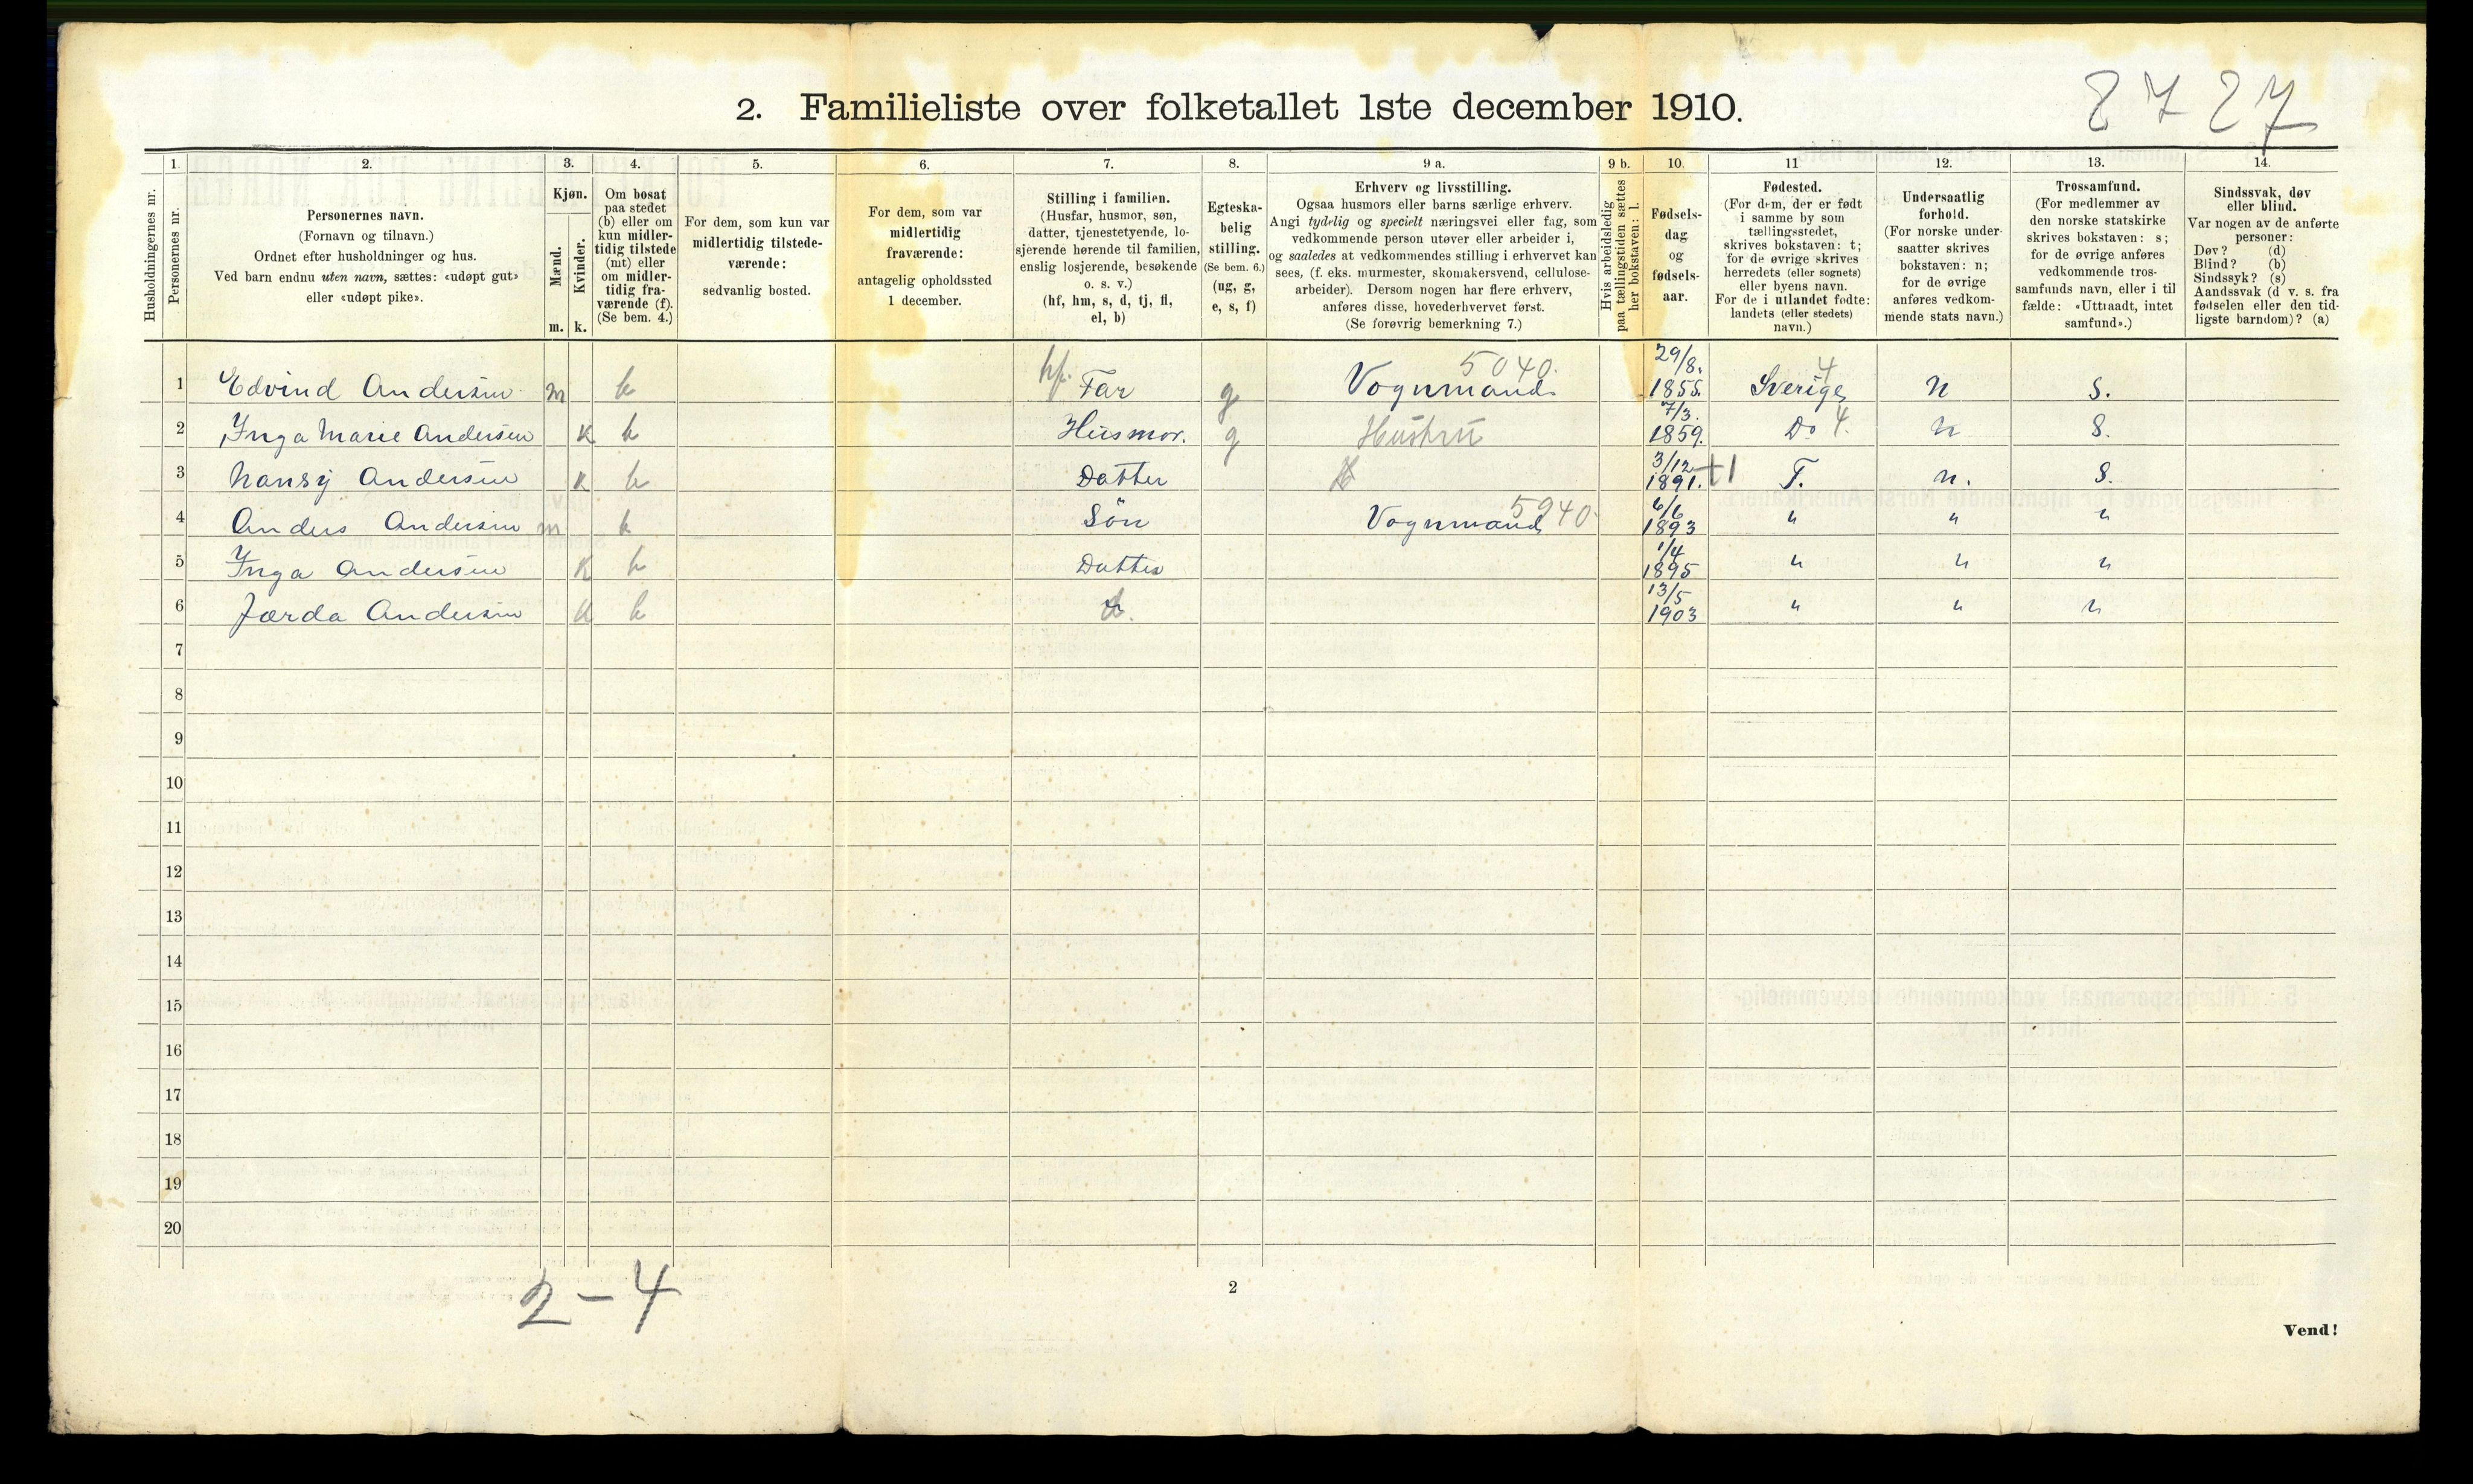 8727
2. Familieliste over folketallet 1ste december 1910.
1. 2. 3. 4. 5. 6. 7. 8. 9 a. 9 b. 10. 11 12. 13. 14.
Husholdningernes nr.
Personernes nr.
Personernes navn.
(Fornavn og tilnavn.)
Ordnet efter husholdninger og hus.
Ved barn endnu uten navn, sættes: «udøpt gut»
eller «udøpt pike».
Kjøn.
Mænd.
m.
Kvinder.
k.
Om bosat
paa stedet
(b) eller om
kun midler-
tidig tilstede
(mt) eller
om midler-
tidig fra-
værende (f).
(Se bem. 4.)
For dem, som kun var
midlertidig tilstede-
værende:
sedvanlig bosted.
For dem, som var
midlertidig
fraværende:
antagelig opholdssted
1 december.
Stilling i familien.
(Husfar, husmor, søn,
datter, tjenestetyende, lo-
sjerende hørende til familien,
enslig losjerende, besøkende
o. s. v.)
(hf, hm, s, d, tj, fl,
el, b)
Egteska-
belig
stilling.
(Se bem. 6.)
(ug, g,
e, s, f)
Erhverv og livsstilling.
Ogsaa husmors eller barns særlige erhverv.
Angi tydelig og specielt næringsvei eller fag, som
vedkommende person utøver eller arbeider i,
og saaledes at vedkommendes stilling i erhvervet kan
sees, (f. eks. murmester, skomakersvend, cellulose-
arbeider). Dersom nogen har flere erhverv,
anføres disse, hovederhvervet først.
(Se forøvrig bemerkning 7.)
Hvis arbeidsledig
paa tællingstiden sættes
her bokstaven: l.
Fødsels-
dag
og
fødsels-
aar.
Fødested.
(For dem, der er født
i samme by som
tællingsstedet,
skrives bokstaven: t;
for de øvrige skrives
herredets (eller sognets)
eller byens navn.
For de i utlandet fødte:
landets (eller stedets)
navn.)
Undersaatlig
forhold.
(For norske under-
saatter skrives
bokstaven: n;
for de øvrige
anføres vedkom-
mende stats navn.)
Trossamfund.
(For medlemmer av
den norske statskirke
skrives bokstaven: s;
for de øvrige anføres
vedkommende tros-
samfunds navn, eller i til
fælde: «Uttraadt, intet
samfund».)
Sindssvak, døv
eller blind.
Var nogen av de anførte
personer:
Døv? (d)
Blind? (b)
Sindssyk? (s)
Aandssvak (d v. s. fra
fødselen eller den tid-
ligste barndom)? (a)
1 Edvind Andersen m b hf. Far g Vognmand. 5040. 29/8. 1855. Sverige 4 n s.
2 Inga Marie Andersen k b Husmor. g Hustru 7/3. 1859. Do 4. n s.
3 Nansy Andersen k b Datter 3/12 1891. +1 T. n. s.
4 Anders Andersen m b Sön Vognmand 5940 6/6 1893 " " "
5 Inga Andersen k b Datter 1/4 1895 " " "
6 Jærda Andersen k b d. 13/5 1903 " " "
7
8
9
10
11
12
13
14
15
16
17
18
19
20
2-4
2
Vend!